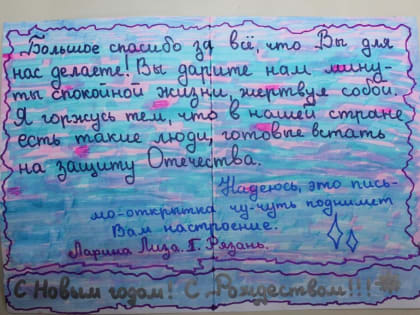 Большое спасибо за всё, что Вы для
нас делаете! Вы дарите нам мину-
ты спокойной жизни, жертвуя собой.
Я горжусь тем, что в нашей стране
есть такие люди, готовые встать
на защиту Отечества.
Надеюсь, это пись-
мо-открытка чу-чуть поднимет
Вам настроение.
Ларина Лиза. Г. Рязань.
С Новым годом! С Рождеством!!!